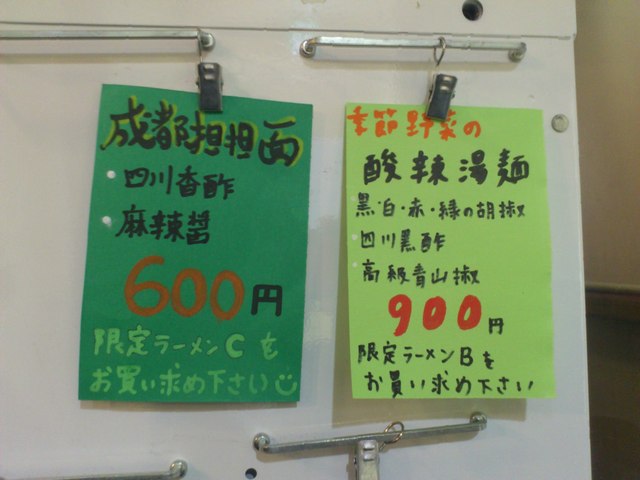 成都担担面
・四川香酢
・麻辣醤
600円
限定ラーメンCを
お買い求め下さい
季節野菜の
酸辣湯麺
黒・白・赤・緑の胡椒
四川黒酢
高級青山椒
900円
限定ラーメンBを
お買い求め下さい